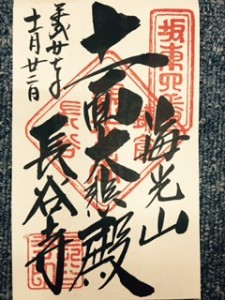 坂東四番
海光山
十一面大悲殿
長谷寺
平成廿七年
十一月廿二日